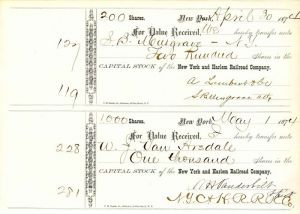 200 Shares. New York, April 30 1874
127
For Value Received, We hereby transfer unto
J. B. Musgrave - N.Y.
Two Hundred Shares in the
CAPITAL STOCK of the New York and Harlem Railroad Company.
119
1000 Shares. New York, May 1 1874
228
For Value Received, I hereby transfer unto
W. Van Arsdale
One thousand Shares in the
CAPITAL STOCK of the New York and Harlem Railroad Company.
281
W H Vanderbilt
N.Y.C & H.R.R.R. Co